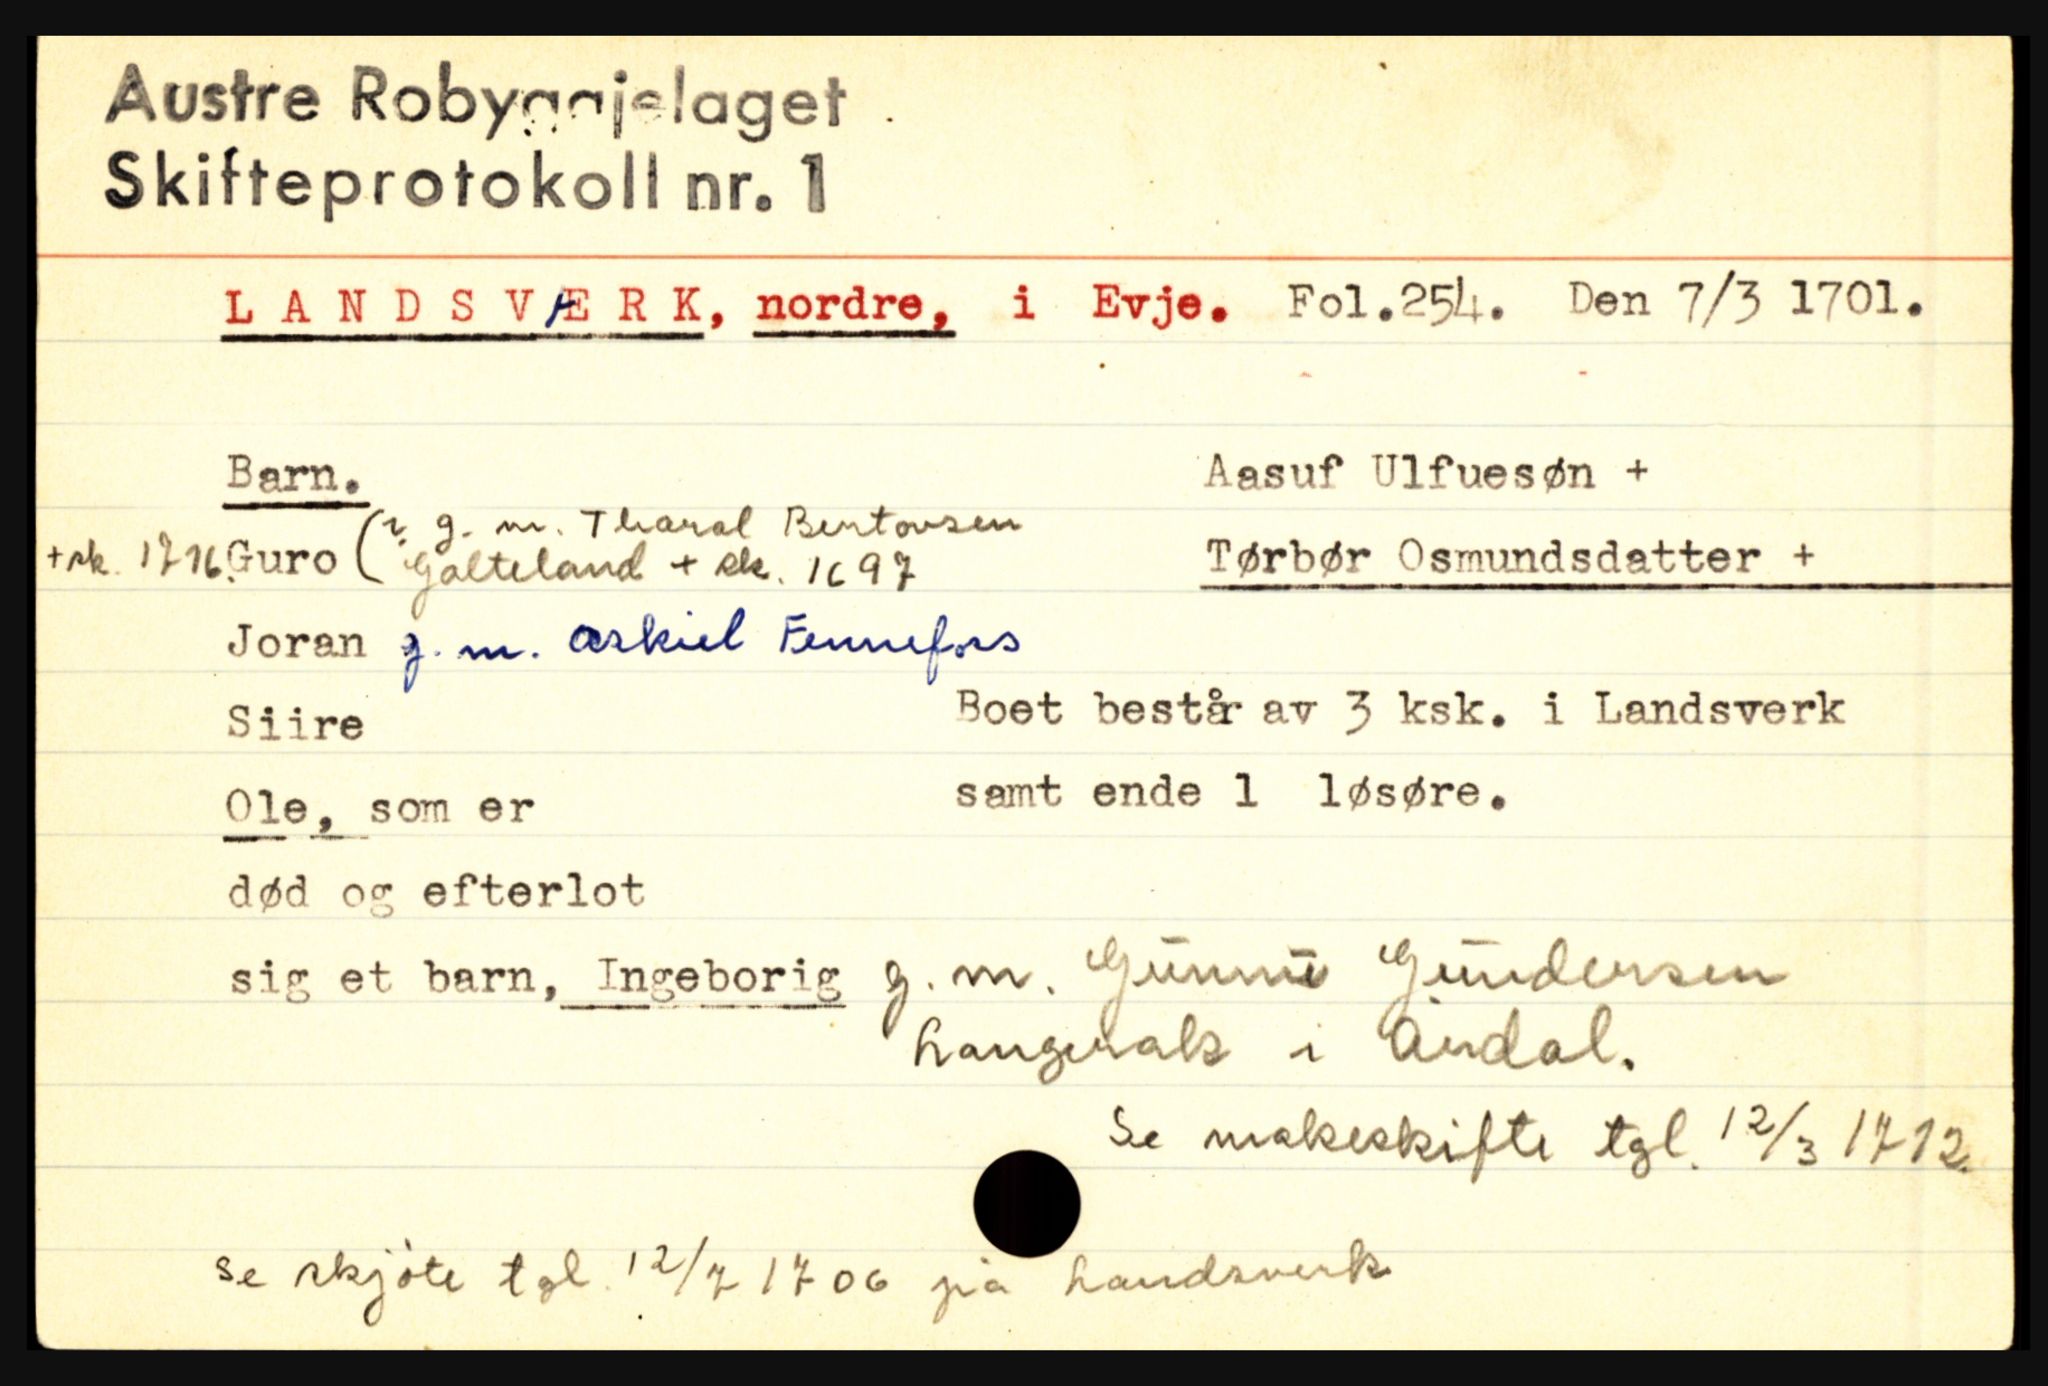 Austre Robyggjelaget
Skifteprotokoll nr. 1
LANDSVÆRK, nordre, i Evje. Fol.254. Den 7/3 1701.
Barn.
Aasuf Ulfuesøn +
+ sk. 1716. Guro (? g. m. Tharal Bentovsen
Galteland + sk. 1697
Tørbør Osmundsdatter +
Joran g. m. Askiel Fennefoss
Siire
Boet består av 3 ksk. i Landsverk
Ole, som er
samt ende 1 løsøre.
død og efterlot
sig et barn, Ingeborig g. m. Gunnu Gundersen
Langerak i Årdal.
Se makeskifte tgl. 12/3 1712.
Se skjöte tgl. 12/7 1706 på Landsverk